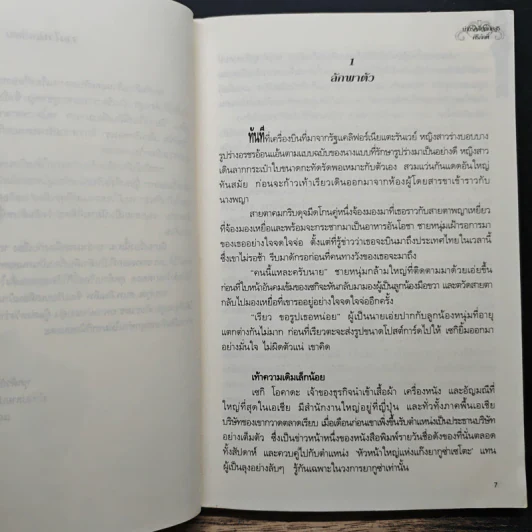 1
ลักพาตัว
ทันทีที่เครื่องบินที่มาจากรัฐแคลิฟอร์เนียแตะรันเวย์ หญิงสาวร่างบอบบาง
รูปร่างอรชรอ้อนแอ้นตามแบบฉบับของนางแบบที่รักษารูปร่างมาเป็นอย่างดี หญิงสาว
เดินลากกระเป๋าใบขนาดกะทัดรัดพอเหมาะกับตัวเอง สวมแว่นกันแดดอันใหญ่
ทันสมัย ก่อนจะก้าวเท้าเรียวเดินออกมาจากห้องผู้โดยสารขาเข้าราวกับ
นางพญา
สายตาคมกริบดุจมีดโกนคู่หนึ่งจ้องมองมาที่เธอราวกับสายตาพญาเหยี่ยว
ที่จ้องมองเหยื่อและพร้อมจะกระชากมาเป็นอาหารอันโอชา ชายหนุ่มเฝ้ารอการมา
ของเธออย่างใจจดใจจ่อ ตั้งแต่ที่รู้ข่าวว่าเธอจะบินมาถึงประเทศไทยในเวลานี้
ซึ่งเขาไม่รอช้า รีบมาดักรอก่อนที่คนทางวังของเธอจะมาถึง
“คนนี้แหละครับนาย” ชายหนุ่มกล้ามใหญ่ที่ติดตามมาด้วยเอ่ยขึ้น
ก่อนที่ใบหน้าอันคมเข้มของเซกิจะหันกลับมามองผู้เป็นลูกน้องมือขวา และตวัดสายตา
กลับไปมองเหยื่อที่เขารออยู่อย่างใจจดใจจ่ออีกครั้ง
“เรียว ขอรูปเธอหน่อย” ผู้เป็นนายเอ่ยปากกับลูกน้องหนุ่มที่อายุ
แตกต่างกันไม่มาก ก่อนที่เรียวตะจะส่งรูปขนาดโปสต์การ์ดไปให้ เซกิยิ้มออกมา
อย่างมั่นใจ ไม่ผิดตัวแน่ เขาคิด
เท้าความเดิมเล็กน้อย
เซกิ โอคาดะ เจ้าของธุรกิจนำเข้าเสื้อผ้า เครื่องหนัง และอัญมณีที่
ใหญ่ที่สุดในเอเชีย มีสำนักงานใหญ่อยู่ที่ญี่ปุ่น และทั่วทั้งภาคพื้นเอเชีย
บริษัทของเขากวาดตลาดเรียบ เมื่อเดือนก่อนเขาเพิ่งขึ้นรับตำแหน่งเป็นประธานบริษัท
อย่างเต็มตัว ซึ่งเป็นข่าวหน้าหนึ่งของหนังสือพิมพ์รายวันชื่อดังของที่นั่นตลอด
ทั้งสัปดาห์ และควบคู่ไปกับตำแหน่ง ‘หัวหน้าใหญ่แห่งแก๊งยากูซ่าเซโตะ’ แทน
ผู้เป็นลุงอย่างลับๆ รู้กันเฉพาะในวงการยากูซ่าเท่านั้น
7